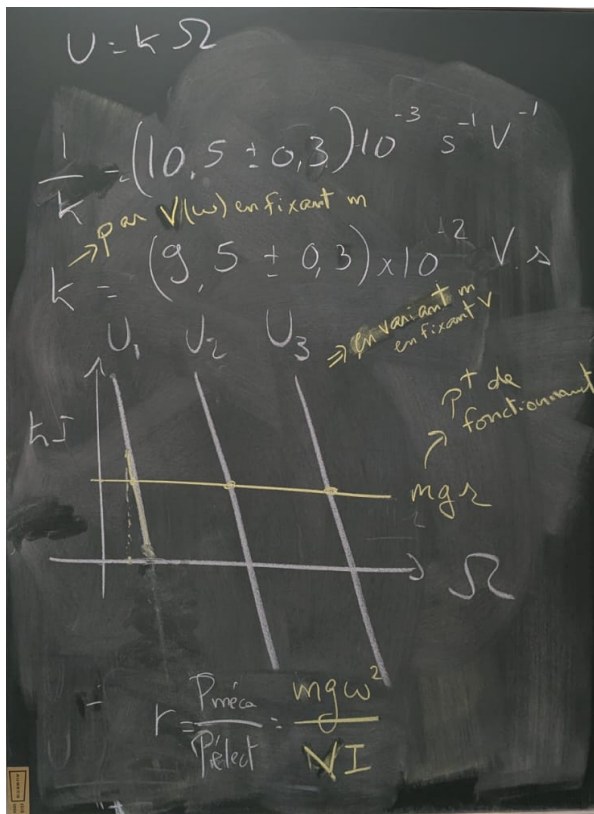 U = k Ω
1/k = (10,5 ± 0,3) 10⁻³ s⁻¹ V⁻¹
→ par V(ω) en fixant m
k = (9,5 ± 0,3) × 10⁻² V.s
U₁ U₂ U₃
⇒ en variant m
en fixant V
pᵗ de
fonctionnant
kI
mgr
Ω
r = Pméca / Pélect = mgω² / VI